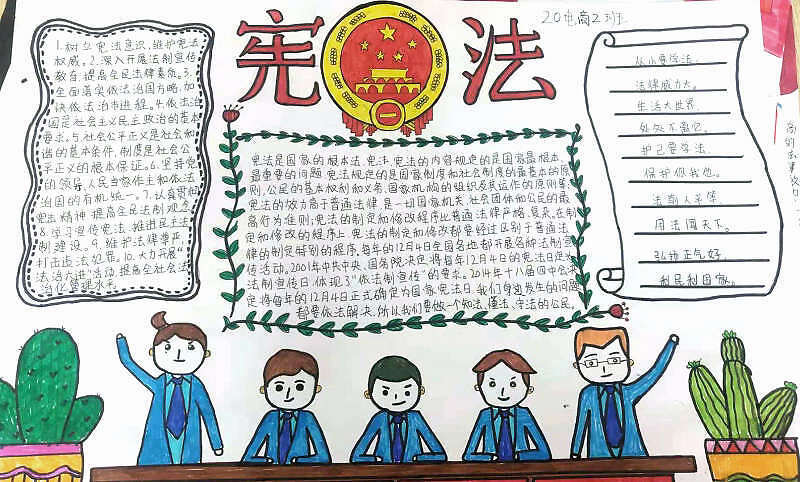 宪法
20电商2班
1.树立宪法意识,维护宪法
权威。2.深入开展法制宣传
教育,提高全民法律素质。3.
全面落实依法治国方略,加
快依法治市进程。4.依法治
国是社会主义民主政治的基本
要求。5.社会公平正义是社会和
谐的基本条件,制度是社会公
平正义的根本保证。6.坚持党
的领导,人民当家作主和依法
治国的有机统一。7.认真贯彻
宪法精神 提高全民法制观念
8.学习宣传宪法,推进民主法
制建设。9.维护法律尊严,
打击违法犯罪。10.大力开展"
法治六进"活动,提高全社会法
治化管理水平
宪法是国家的根本法,宪法,宪法的内容规定的是国家最根本、
最重要的问题,宪法规定的是国家制度和社会制度的最基本的原
则,公民的基本权利和义务,国家机构的组织及其运作的原则等,
宪法的效力高于普通法律,是一切国家机关,社会团体和公民的最
高行为准则;宪法的制定和修改程序比普通法律严格、复杂,在制
定和修改的程序上,宪法的制定和修改都要经过区别于普通法
律的制定特别的程序,每年的12月4日全国各地都开展各种法制宣
传活动。2001年中共中央、国务院决定将每年12月4日的宪法日定为
法制宣传日,体现了"依法制宣传"的要求。2014年十八届四中会决
定将每年的12月4日正式确定为国家宪法日,我们身边发生的问题
都要依法解决,所以我们要做一个知法、懂法、守法的公民。
从小要学法,
法律威力大。
生活大世界,
处处不离它。
护己要学法,
保护你我他。
法前人平等,
用法闯天下。
弘扬正气好,
利民利国家。